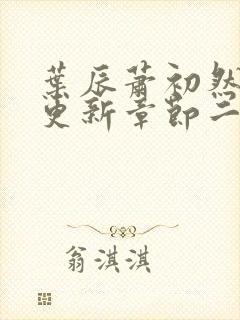 葉辰蕭初然
更新章節二
翁淇淇